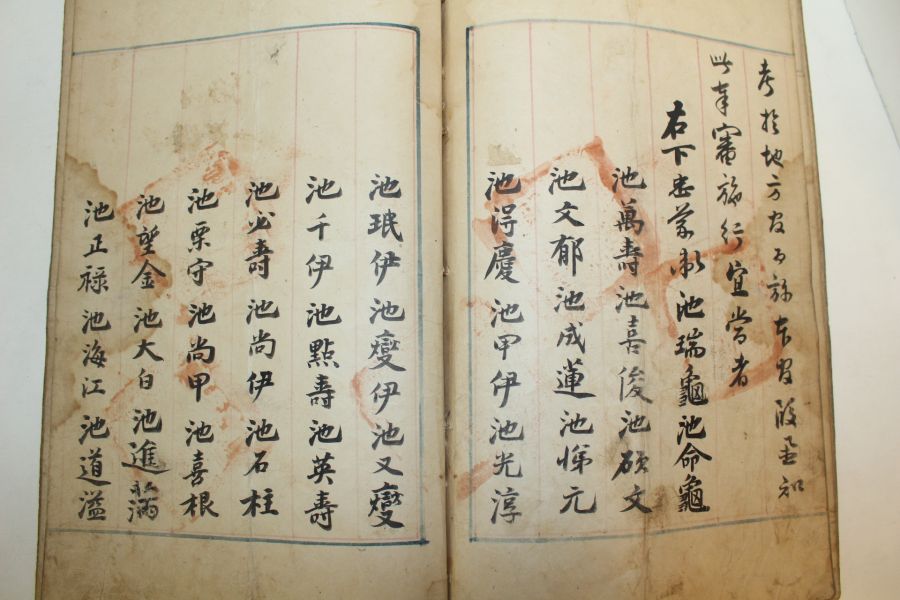 考於地方官了
此幸審施行宜當者
右下忠 池瑞龜池命龜
池萬壽池喜俊池碩文
池文郁池成蓮池悌元
池得慶池甲伊池光淳
池珉伊池變伊池又變
池千伊池點壽池英壽
池必壽池尚伊池石柱
池栗守池尚甲池喜根
池望金池大白池進滿
池正祿池海江池道溢